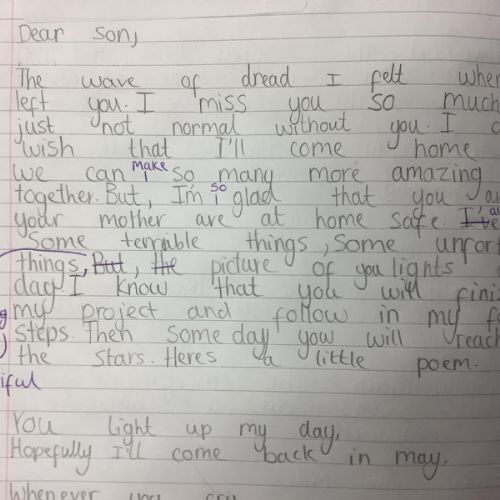 Dear Son,
The wave of dread I felt when
left you. I miss you so much
just not normal without you. I
wish that I'll come home
we can make so many more amazing
together. But, I'm so glad that you
your mother are at home safe. I've
Some terrible things, Some
things, But, the picture of you lights
day I know that you will
my project and follow in my
steps. Then some day you will reach
the stars. Heres a little poem.
iful
You light up my day,
Hopefully I'll come back in may,
Whenever you cry